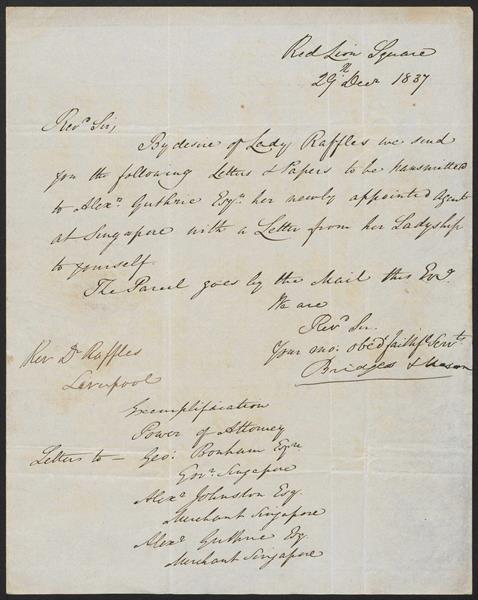 Red Lion Square
29th Decr 1837
Revd Sir,
By desire of Lady Raffles we send
you the following Letters & Papers to be transmitted
to Alexr Guthrie Esqr her newly appointed Agent
at Singapore with a Letter from her Ladyship
to yourself.
The Parcel goes by the Mail this Eveg.
We are
Revd Sir
Your mo: obedt faithful Servts
Bridges & Mason
Rev Dr Raffles
Leverpool
Exemplification
Power of Attorney
Letters to — Geo: Bonham Esqre
Govr Singapore
Alexr Johnston Esq.
Merchant Singapore
Alexr Guthrie Esq
Merchant Singapore